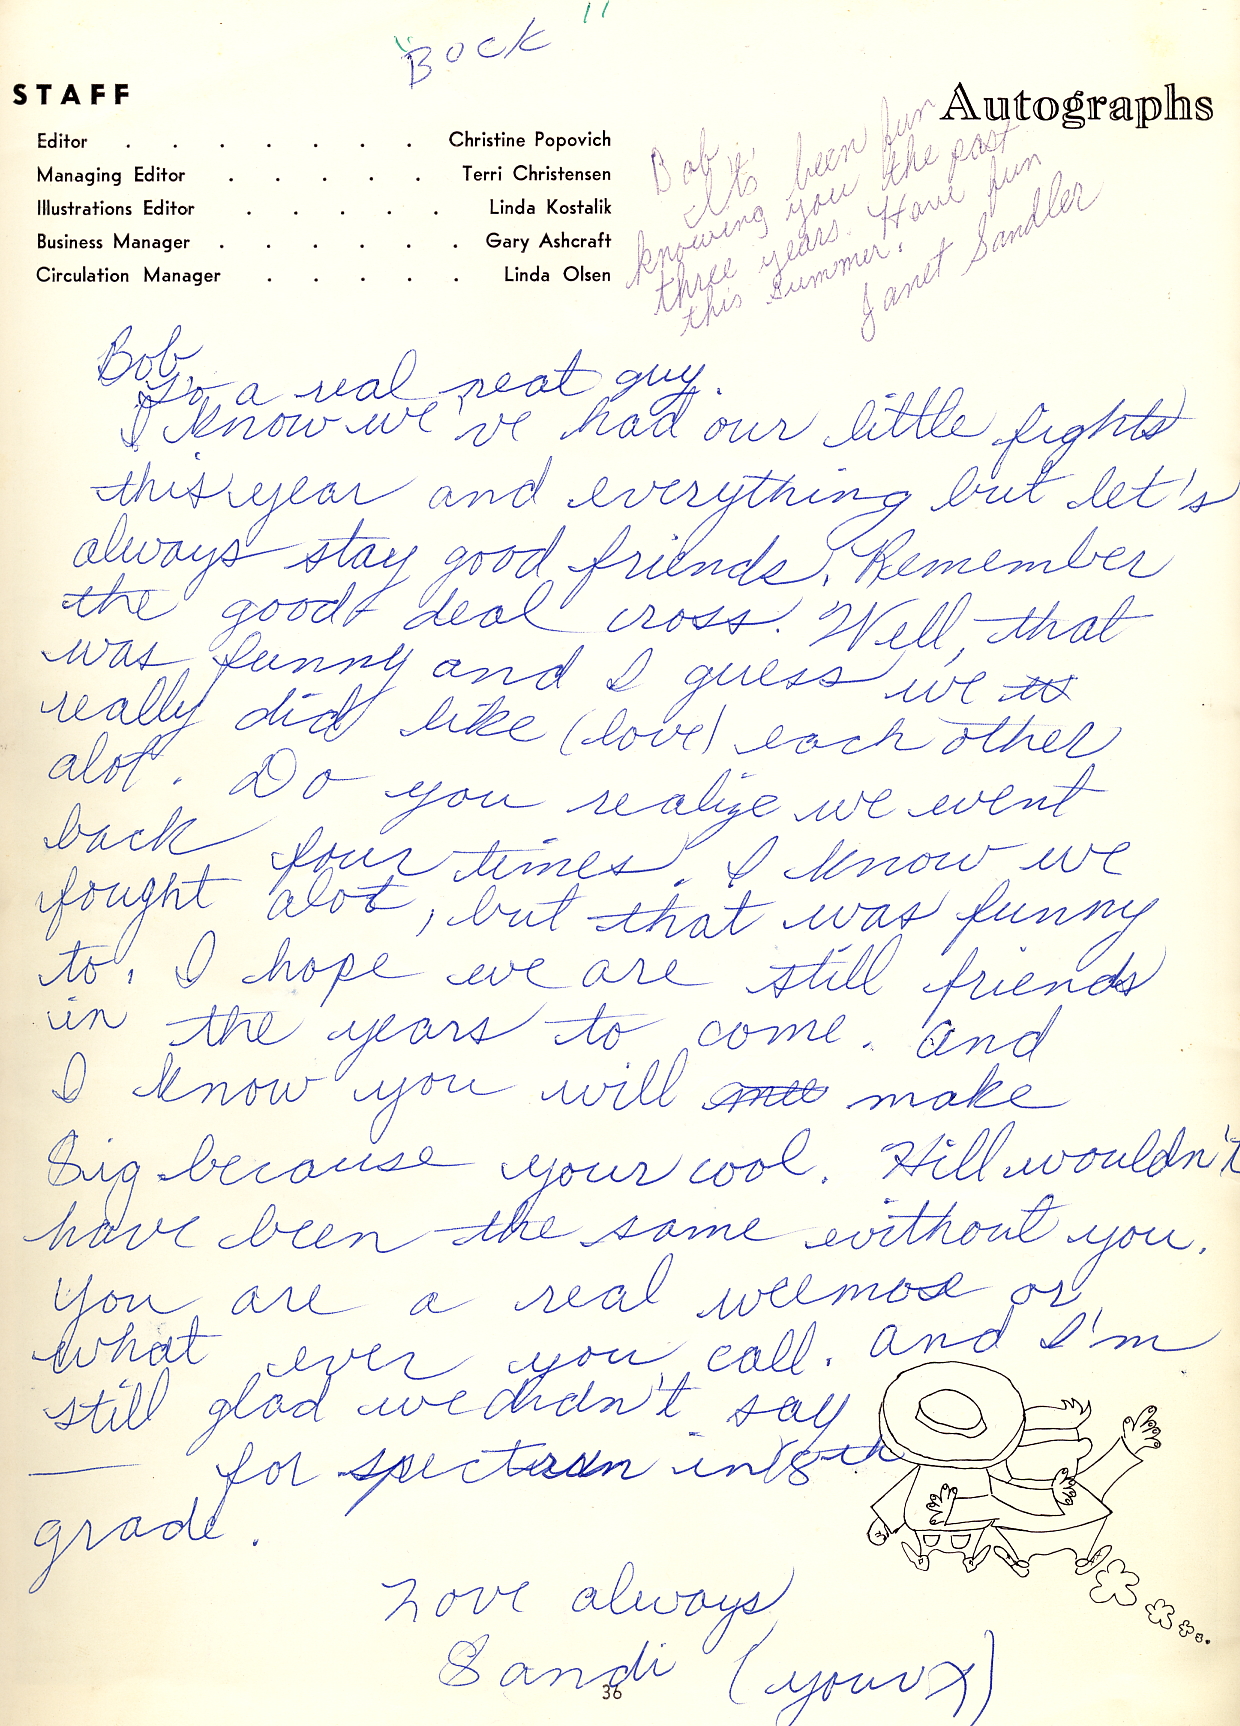 "Bock"
STAFF
Autographs
Editor . . . . . . . Christine Popovich
Managing Editor . . . . . Terri Christensen
Illustrations Editor . . . . . Linda Kostalik
Business Manager . . . . . . Gary Ashcraft
Circulation Manager . . . . . Linda Olsen
Bob,
It's been fun
knowing you the past
three years. Have fun
this summer.
Janet Sandler
Bob,
To a real neat guy.
I know we've had our little fights
this year and everything but let's
always stay good friends. Remember
the good deal cross. Well, that
was funny and I guess we
really did like (love) each other
alot. Do you realize we went
back four times. I know we
fought alot, but that was funny
to. I hope we are still friends
in the years to come. And
I know you will make
Sig because your cool. Hill wouldn't
have been the same without you.
You are a real weemose or
what ever you call. And I'm
still glad we didn't say
—— for spectrum in 8th
grade.
Love always
Sandi (your X)
36